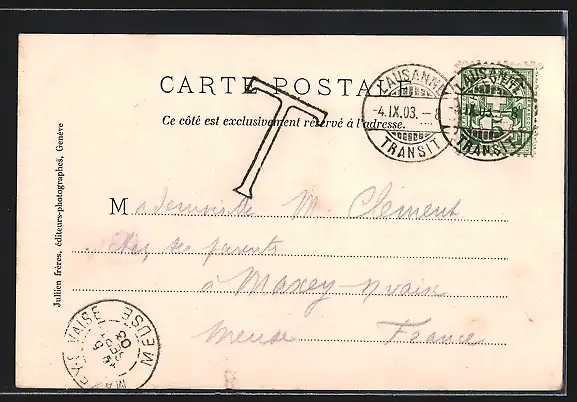 CARTE POSTALE
Ce côté est exclusivement réservé à l'adresse.
T
LAUSANNE
-4.IX.03.-8
TRANSIT
LAUSANNE
IX.03.
TRANSIT
Mademoiselle M. Clément
chez ses parents
à Maxey-s-Vaise
Meuse France
Jullien frères, éditeurs-photographes, Genève
MAXEY-S-VAISE
03
MEUSE